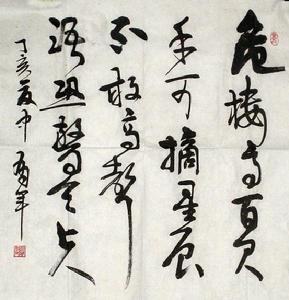 危楼高百尺
手可摘星辰
不敢高声
语恐惊天上人
丁亥夏中